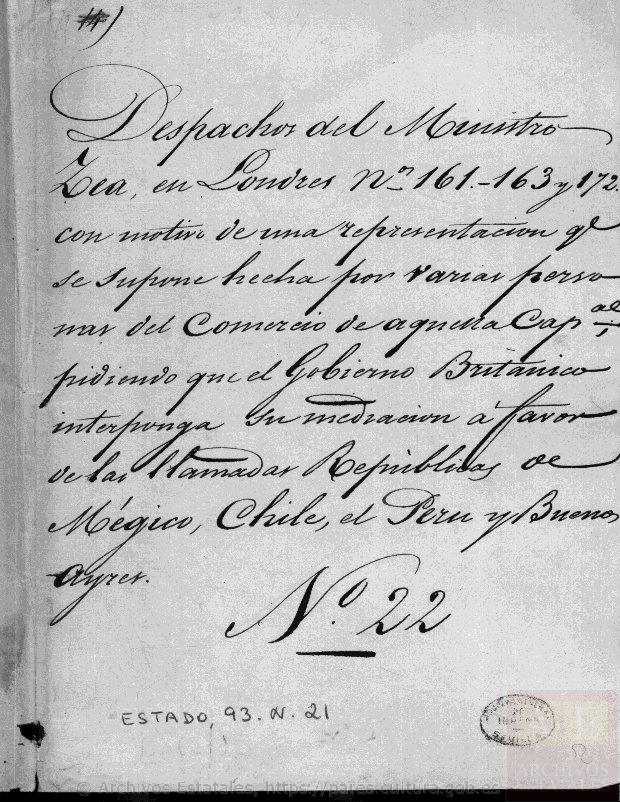 14)
Despachos del Ministro
Zea, en Londres Nos 161.-163 y 172.
con motivo de una representacion qe
se supone hecha por varias perso-
nas del Comercio de aquella Capal,
pidiendo que el Gobierno Británico
interponga su mediacion á favor
de las llamadas Repúblicas de
Mégico, Chile, el Peru y Buenos
Ayres.
No. 22
ESTADO, 93. N. 21
ARCHIVOS
© Archivos Estatales, https://pares.cultura.gob.es